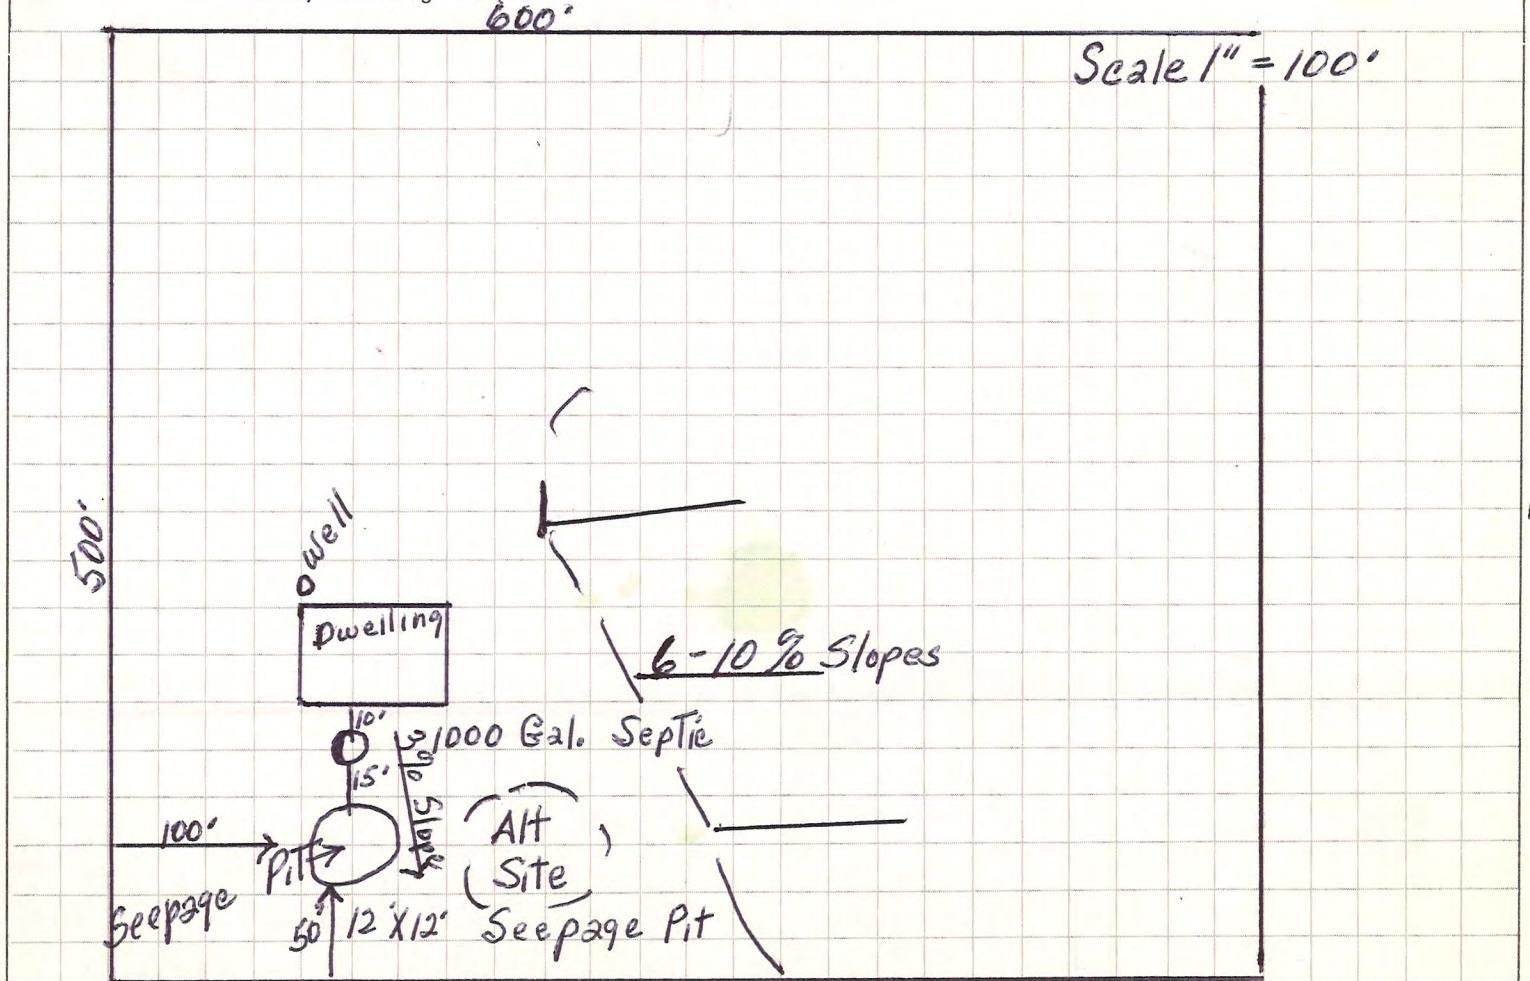 600'
Scale 1" = 100'
500'
Well
Dwelling
6-10% Slopes
10'
1000 Gal. Septic
3% Slope
15'
100'
Pit
Alt
Site
Seepage
50'
12'X12'
Seepage Pit